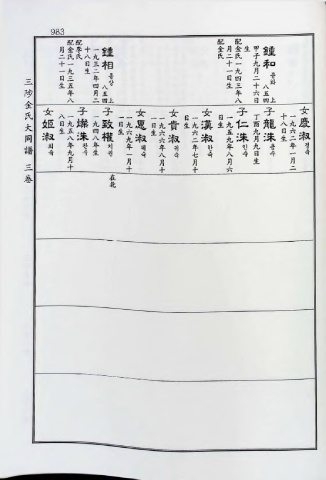 983
三陟金氏大同譜 三卷
鍾和 종화 八五四上
甲子九月二十六日
生
配金氏一九四三年八
月二十一日生
鍾相 종상 八五四上
一九三二年四月二
十八日生
配李氏
配金氏一九三五年八
月二十一日生
女慶淑 경숙
一九六二年一月二
十八日生
子龍洙 용수
丁酉九月九日生
子仁洙 인수
一九五九年八月六
日生
女漢淑 한숙
一九六二年七月十
日生
女貴淑 귀숙
一九六六年八月十
日生
女惠淑 혜숙
一九六九年一月十
日生
子致權 치권 在北
一九四八年生
子燦洙 찬수
一九五八年九月十
八日生
女姬淑 희숙